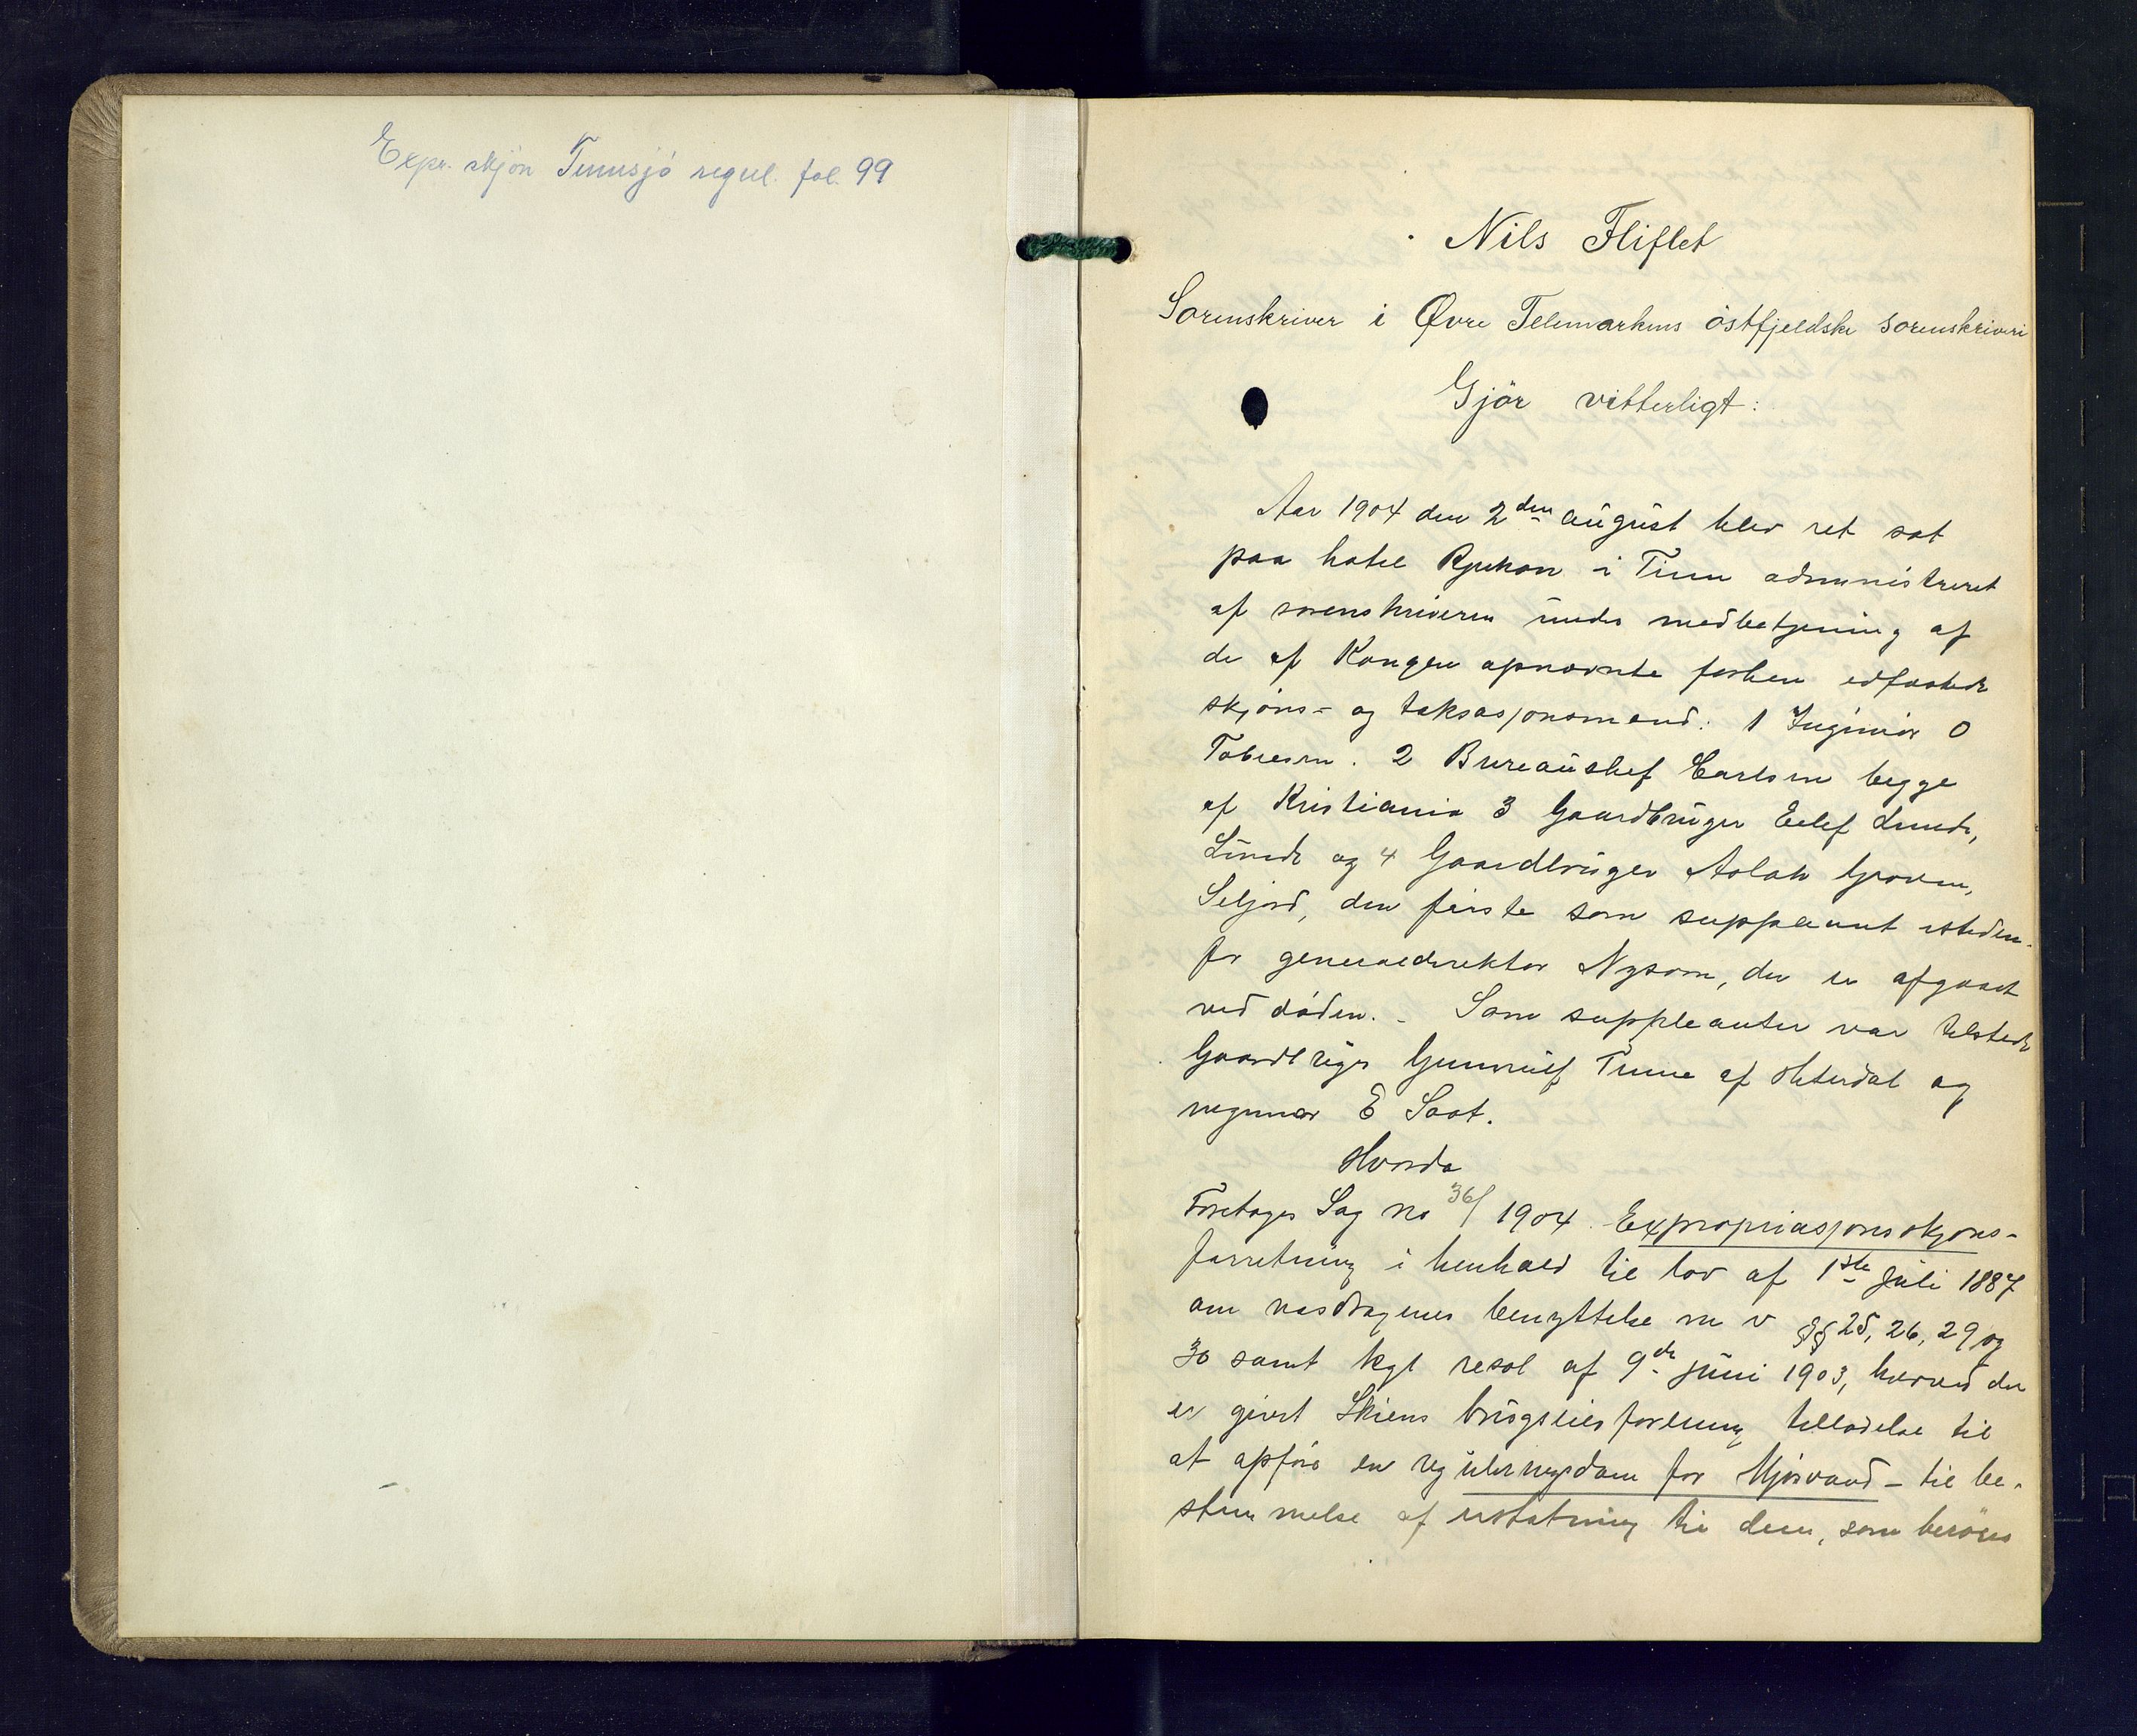 Expr. skjön Tinnsjö regul. fol. 99
Nils Fliflet
Sorenskriver i Øvre Telemarkens östfjeldske sorenskriveri
Gjör vitterligt:
Aar 1904 den 2den august blev ret sat
paa hotel Rjukan i Tinn administreret
af sorenskriveren under medbetjening af
de af Kongen opnævnte forhen edfæstede
skjöns- og taksasjonsmænd: 1 Ingeniør O
Tobiesen. 2 Bureauchef Carlsen begge
af Kristiania 3 Gaardbruger Eilef Lunde,
Lunde og 4 Gaardbruger Aslak Groven,
Seljord, den første som suppleant isteden-
for generaldirektør Nysom, der er afgaaet
ved döden. - Som suppleanter var tilstede
Gaardbruger Gunnulf Tinne af Hiterdal og
ingeniør E Saat.
Hvorda
Foretoges Sag no 36/1904. Expropriasjonsskjøns-
forretning i henhold til lov af 1ste juli 1887
om vasdragenes benyttelse m v §§ 25, 26, 29 og
30 samt kgl resol af 9de juni 1903, hvorved der
er givet Skiens brugseierforening tilladelse til
at opføre en reguleringsdam for Mjøsvand - til be-
stemmelse af erstatning til dem, som berøres